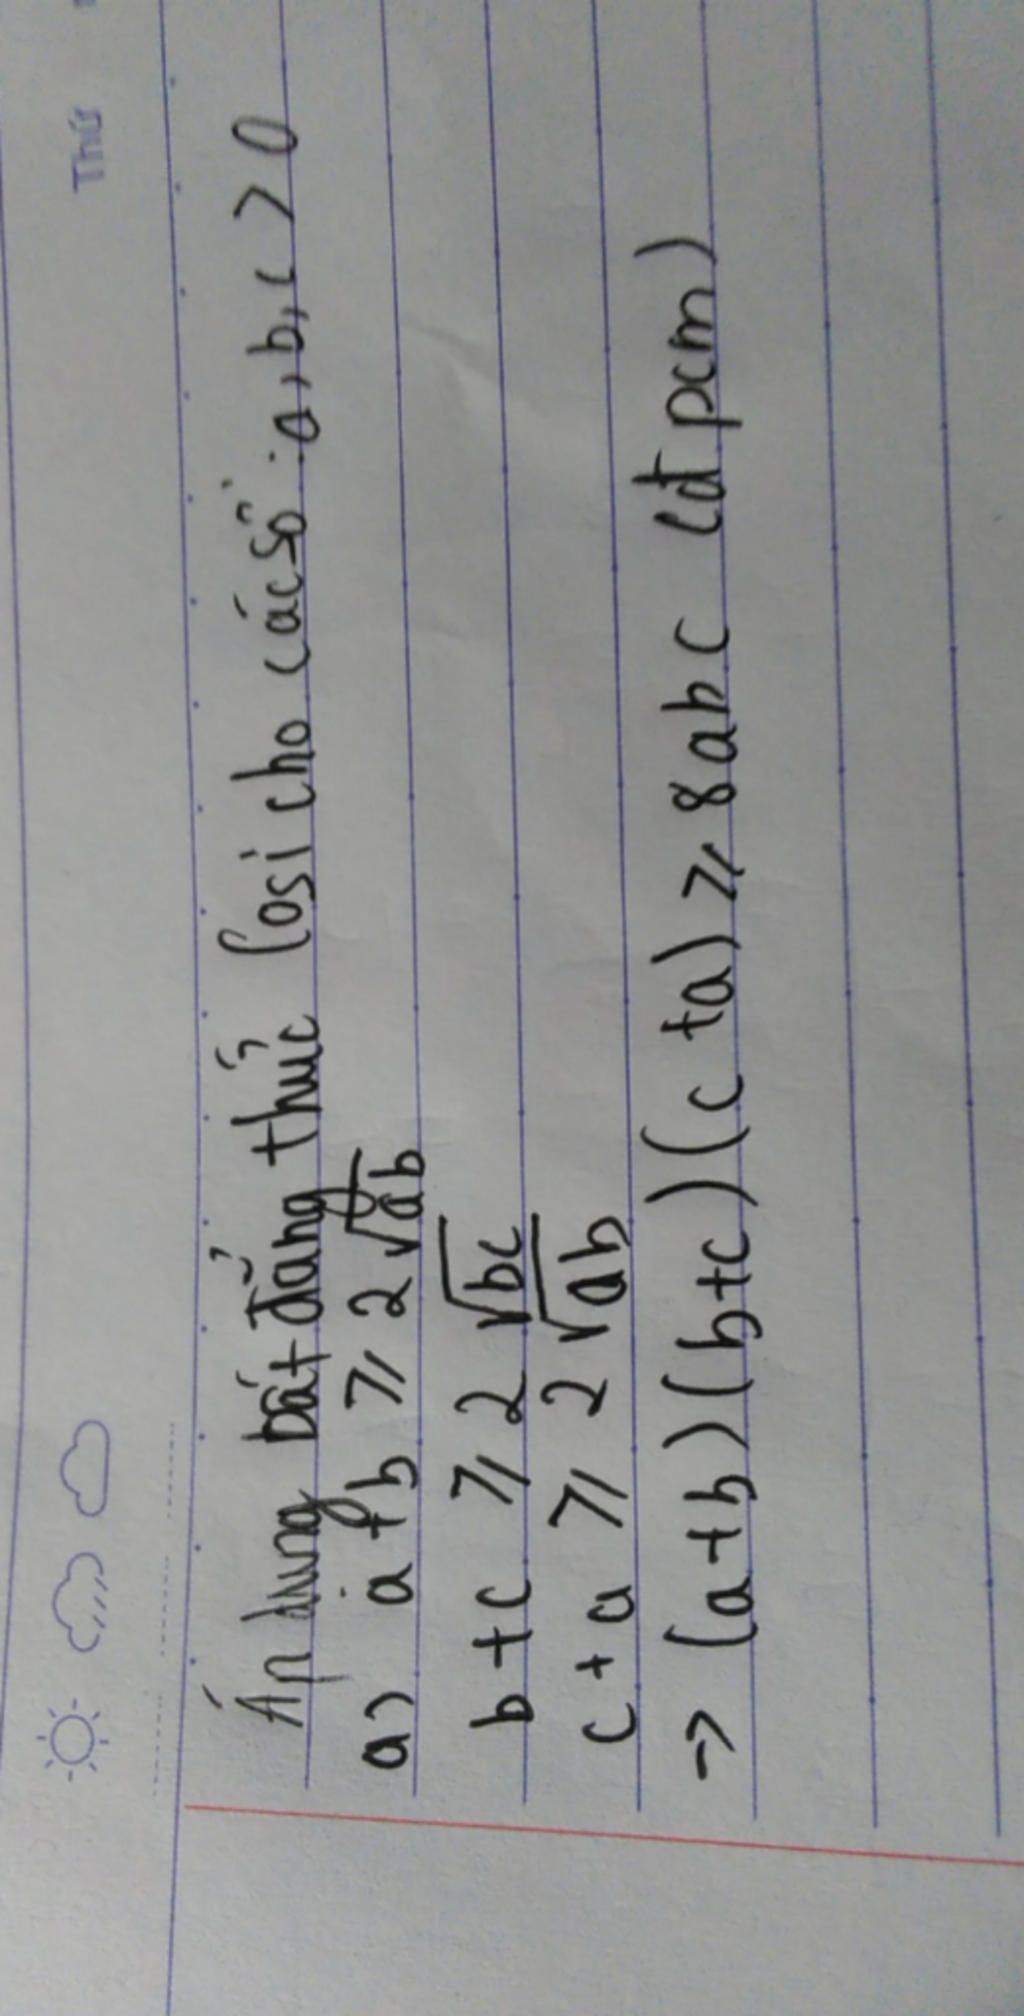 Thứ
Áp dụng bất đẳng thức Cosi cho các số : a, b, c > 0
a) a + b ⩾ 2√ab
b + c ⩾ 2√bc
c + a ⩾ 2√ab
→ (a+b)(b+c)(c+a) ⩾ 8abc (đpcm)